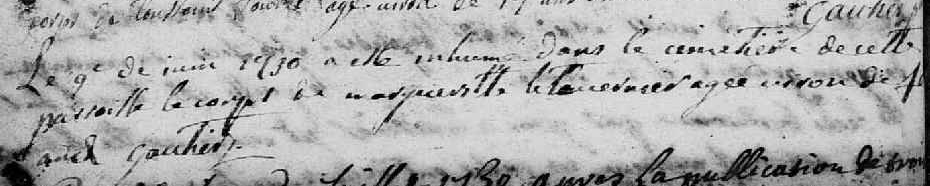 corps de toussaint agé
gautier
Le 9e de juin 1730 a ete inhumé dans le cemetiere de cette
parroisse le corps de margueritte letavernier agée viron de
ans gautier
1730 apres la publication de